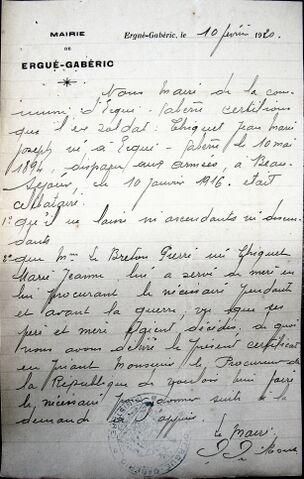 MAIRIE
DE
ERGUÉ-GABÉRIC
Ergué-Gabéric, le 10 février 1920.
Nous Maire de la com-
mune d'Ergué-Gabéric certifions
que l'ex soldat: Chiquet Jean Marie
Joseph né à Ergué-Gabéric le 10 mai
1894, disparu aux armées, à Beau-
Séjour, en 10 janvier 1916. était
célibataire.
1° qu'il ne laisse ni ascendants ni descen-
dants
2° que Mme Le Breton Pierre née Chiquet
Marie Jeanne, lui a servi de mère en
lui procurant le nécessaire pendant
et avant la guerre, vu que ses
père et mère étaient décédés, de quoi
nous avons délivré le présent certificat
en priant Monsieur le Procureur de
la République de vouloir bien faire
le nécessaire pour donner suite à la
demande à l'appui.
Le Maire